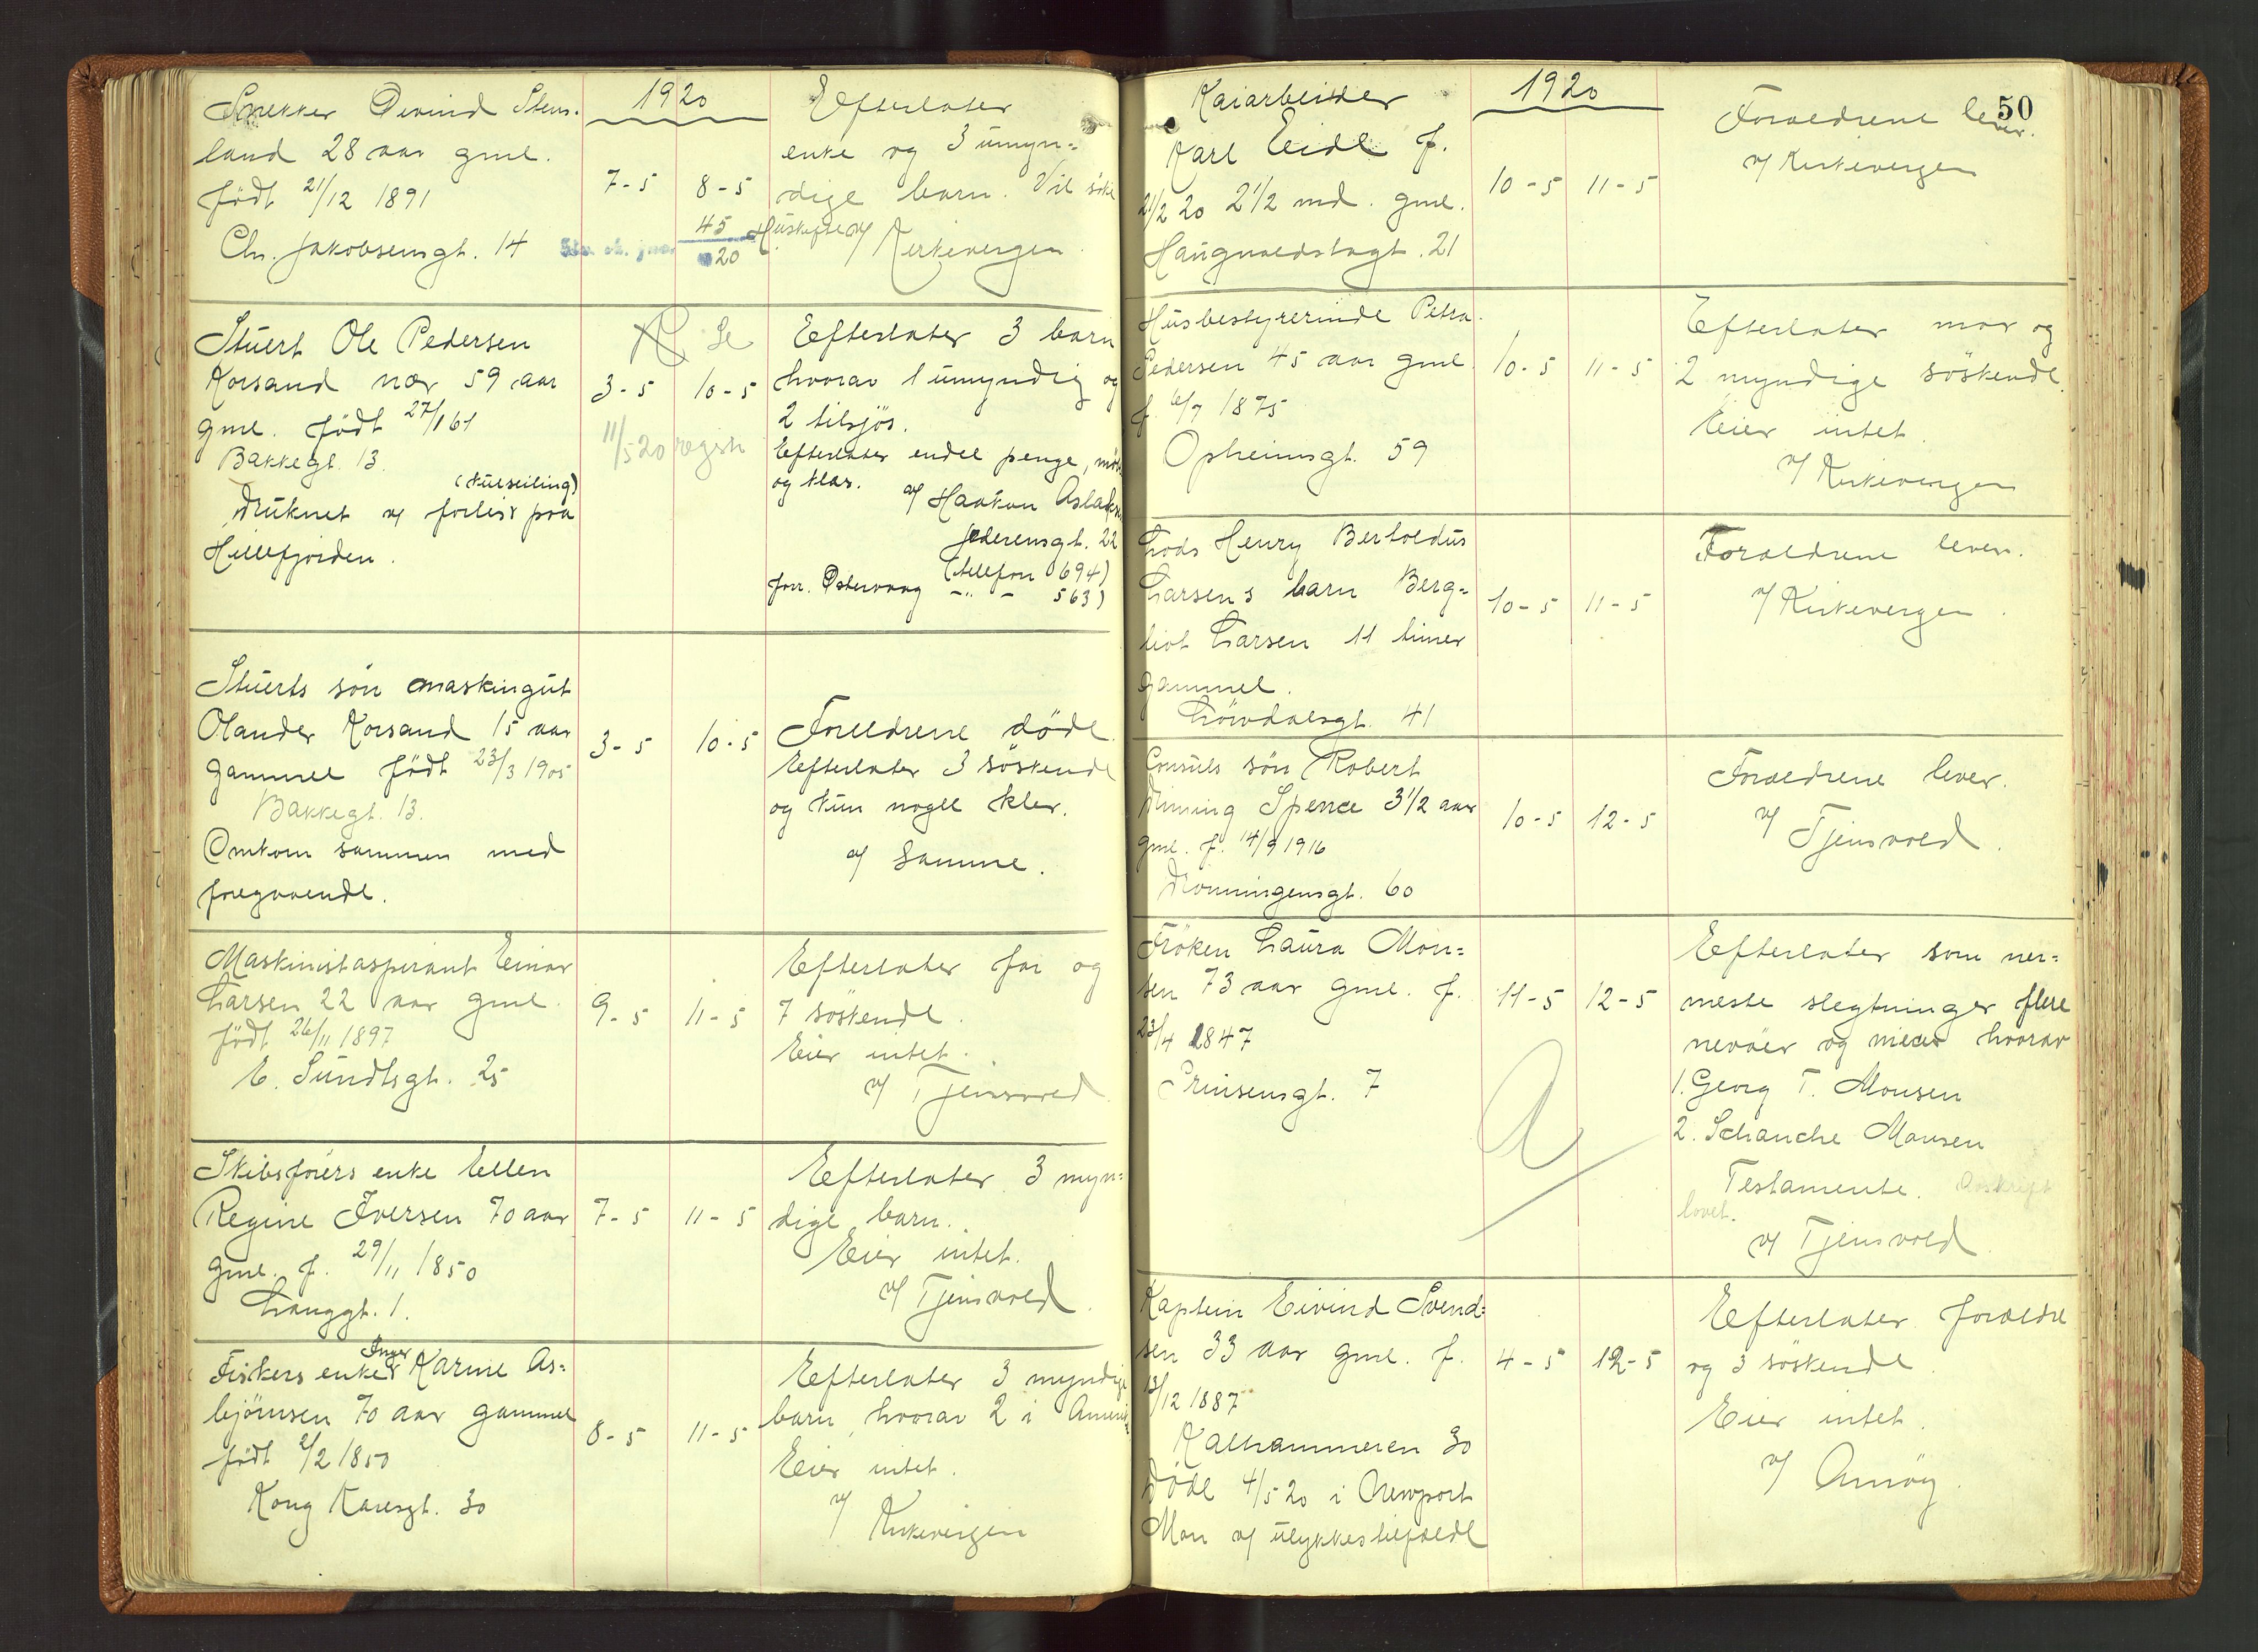 Snekker Øivind Stens-
land 28 aar gml.
født 21/12 1891
Chr. Jakobsensgt. 14
1920
7-5 8-5
45
20
Efterlater
enke og 3 umyn-
dige barn. Vil söke
Uskifte
v/ Kirkevergen
Stuert Ole Pedersen
Korsand nær 59 aar
gml. født 27/1 61
Bakkegt. 13.
(kulseiling)
Druknet v/ forlis paa
Hillefjorden.
3-5 10-5
11/5 20 registr
Efterlater 3 barn
hvorav 1 umyndig og
2 tilsjös.
Efterlater endel penge,
og klær.
v/ Haakon Aslaksen
Jederensgt. 22
(telefon 694)
forr. Østervaag -"- 563)
Stuerts søn maskingut
Olander Korsand 15 aar
gammel født 23/3 1905
Bakkegt. 13.
Omkom sammen med
foregaaende.
3-5 10-5
Foreldrene döde
Efterlater 3 söskende
og kun nogle kler.
v/ Samme.
Maskinistaspirant Einar
Larsen 22 aar gml.
født 26/11 1897
E. Sundtsgt. 25
9-5 11-5
Efterlater far og
7 söskende.
Eier intet.
v/ Tjensvold
Skibsförers enke Ellen
Regine Iversen 70 aar
gml. f. 29/11 1850
Langgt. 1.
7-5 11-5
Efterlater 3 myn-
dige barn.
Eier intet.
v/ Tjensvold
Inger
Fiskers enke Karine As-
björnsen 70 aar gammel
født 2/2 1850
Kong Karlsgt. 30
8-5 11-5
Efterlater 3 myndige
barn, hvorav 2 i Amerik-
Eier intet.
v/ Kirkevergen
50
Kaiarbeider
Karl Eide f.
21/2 20 2 1/2 md. gml.
Haugvaldstagt. 21
1920
10-5 11-5
Foraeldrene lever.
v/ Kirkevergen
Husbestyrerinde Petra
Pedersen 45 aar gml.
f. 6/7 1875
Opheimsgt. 59
10-5 11-5
Efterlater mor og
2 myndige söskende.
Eier intet.
v/ Kirkevergen
Lods Henry Bertoldus
Larsens barn Berg-
liot Larsen 11 timer
gammel.
Lövdalsgt. 41
10-5 11-5
Foraeldrene lever.
v/ Kirkevergen
Consuls søn Robert
Spence 3 1/2 aar
gml. f. 14/9 1916
Dronningensgt. 60
10-5 12-5
Foraeldrene lever.
v/ Tjensvold.
Fröken Laura Mon-
sen 73 aar gml. f.
23/4 1847
Prinsensgt. 7
11-5 12-5
Efterlater som ner-
meste slegtninger flere
nevöer og niecer hvorav
1. Georg T. Monsen
2. Schanche Monsen
Testamente. Avskrift
lovet.
v/ Tjensvold
Kaptein Eivind Svend-
sen 33 aar gml. f.
13/12 1887
Kalhammeren 30
Döde 4/5 20 i Newport
Mon v/ ulykkestilfælde
4-5 12-5
Efterlater forældre
og 3 söskende.
Eier intet.
v/ Amöy